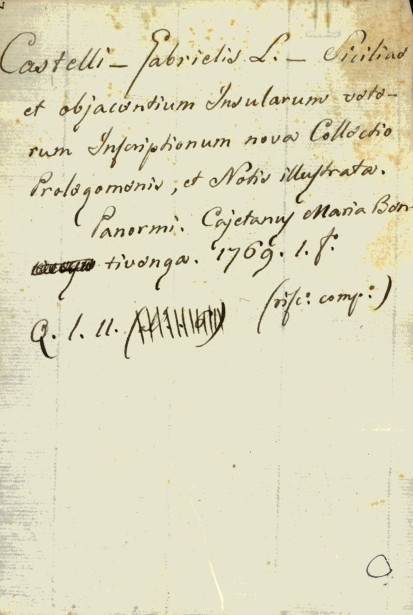 Castelli – Gabrielis L. – Siciliae
et objacentium Insularum vete-
rum Inscriptionum nova Collectio
Prolegomenis, et Notis illustrata.
Panormi. Cajetanus Maria Ben-
tivenga. 1769. 1. f.º
Q. 1. 11. (risc.º comp.º)